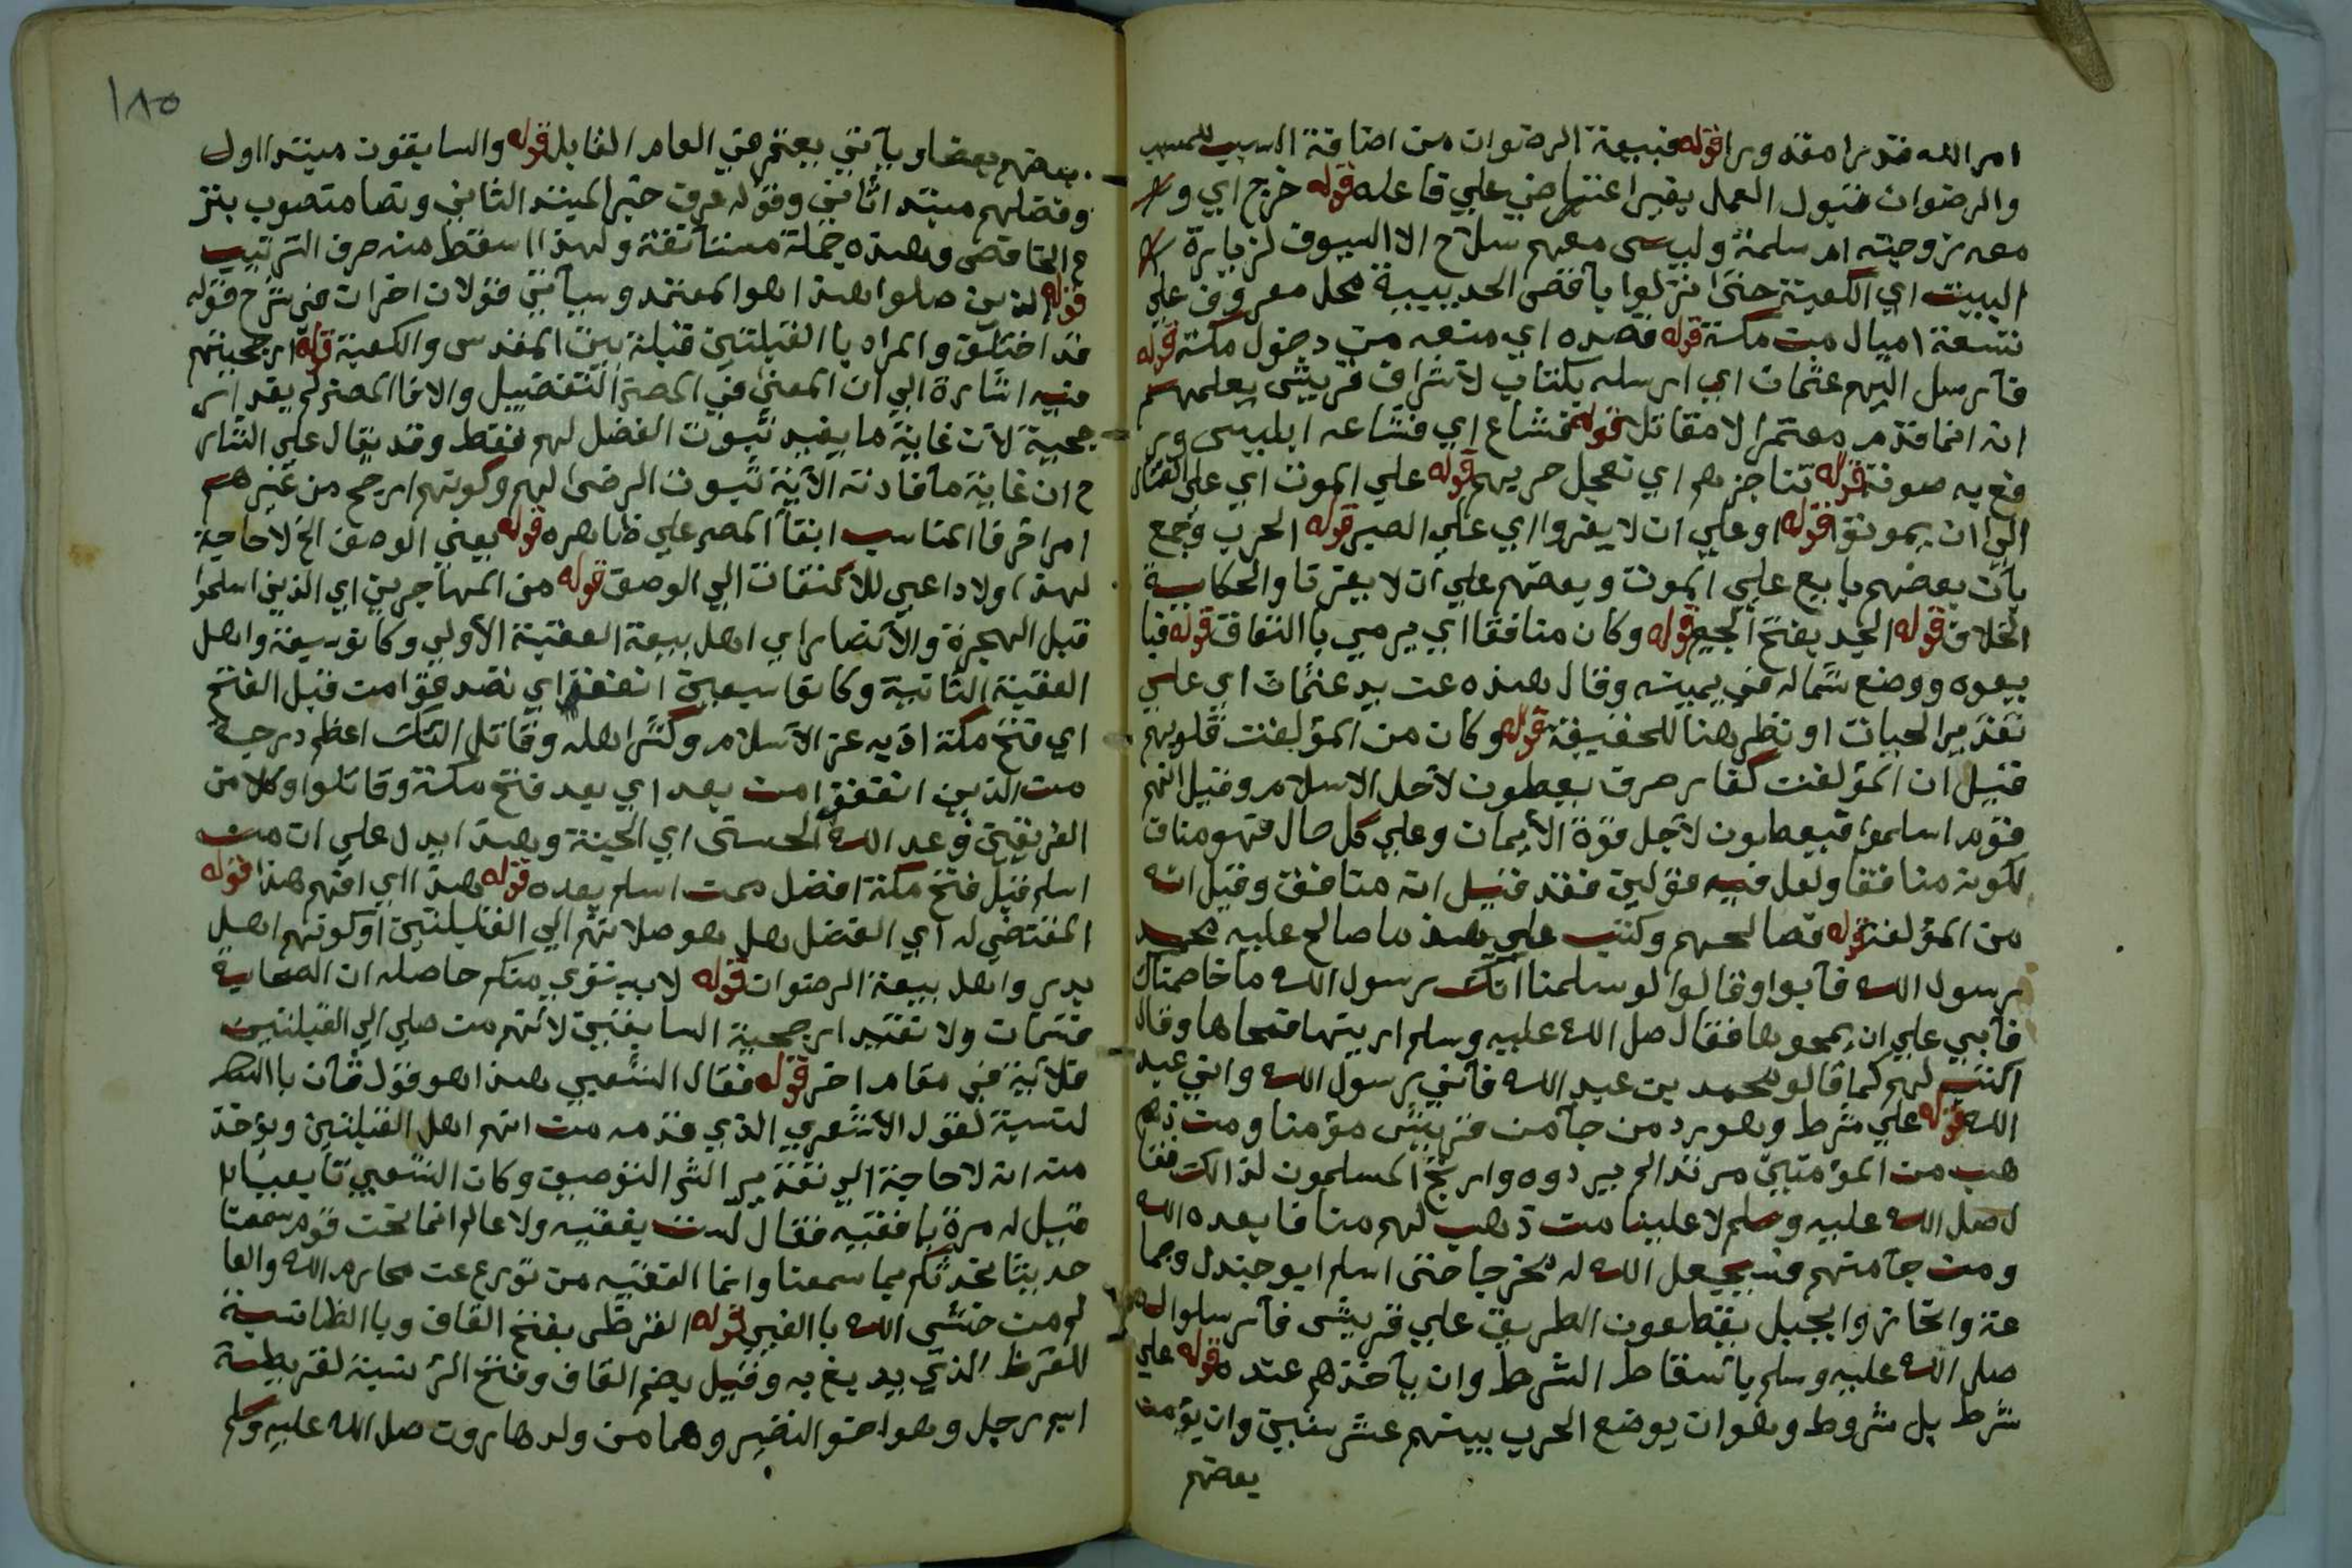 امر الله قدرا مقدورا قوله فبيعة الرضوان من اضافة السبب للمسبب
والرضوان قبول العمل بغير اعتراض علي فاعله قوله خرج اي و
معه زوجته ام سلمة وليس معهم سلاح الا السيوف لزيارة
البيت اي الكعبة حتى انزلوا بأقصى الحديبية محل معروف علي
تسعة اميال من مكة قوله فصده اي منعه من دخول مكة قوله
فأرسل اليهم عثمان اي ارسله بكتاب لأشراف قريش يعلمهم
انه انما قدم معتمرا لا مقاتلا قوله فشاع اي فشاعه ابليس ور
فع به صوته قوله نناجزهم اي نعجل حربهم قوله علي الموت اي علي القتال
الي ان يموتوا قوله او علي ان لا يفروا اي علي الصبر قوله الحرب وجمع
بأن بعضهم بايع علي الموت وبعضهم علي ان لا يفر تا والحكاية
الخلاف قوله الجد بفتح الجيم قوله وكان منافقا اي يرمي باالنفاق قوله فبا
يعوه ووضع شماله في يمينه وقال هذه عن يد عثمان اي علي
تقدير الحيات او نظر هنا للحقيقة قوله وكان من المؤلفت قلوبهم
قيل ان المؤلفت كفار صرف يعطون لأجل الاسلام وقيل انهم
قوم اسلموا فيعطون لأجل قوة الأيمان وعلي كل حال فهو مناف
لكونه منافقا ولعل فيه قولين فقد قيل انه منافق وقيل انه
من المؤلفة قوله فصالحهم وكتب علي هذ ما صالح عليه محمد
رسول الله فأبوا وقالوا لو سلمنا انك رسول الله ما خاصمناك
فأبي علي ان يمحوها فقال صل الله عليه وسلم اريتها فمحاها وقال
اكتب لهم كما قالو محمد بن عبد الله فأني رسول الله واني عبد
الله قوله علي شرط وهو رد من جأ من قريش مؤمنا ومن ذهم
هب من المؤمنين مرتدا لم يردوه وارتج المسلمون لذالك فقا
ل صل الله عليه وسلم لا علينا من ذهب لهم منا فابعده الله
ومن جأ منهم فسيجعل الله له مخرجا حتى اسلم ابو جندل وجما
عة وانحازوا بجبل يقطعون الطريق علي قريش فأرسلوا له
صلى الله عليه وسلم بأسقاط الشرط وان يأخذهم عنده قوله علي
شرط بل شروط وهو ان يوضع الحرب بينهم عشر سنين وان يؤمن
بعضهم
١٨٥
بعضهم بعضا وياتي يعتمر في العام القابل قوله والسابقون مبتدا اول
وفضلهم مبتد اثاني وقوله عرف خبر المبتد الثاني ونصا منصوب بنز
ع الخافض وهذه جملة مستأنفة ولهذا اسقط منه حرف الترتيب
قوله الذين صلوا هذا هو المعتمد وسيأتي قولان اخران في شرح قوله
قد اختلق والمراد باالقبلتين قبلة بيت المقدس والكعبة قوله ارجحيتهم
فيه اشارة الي ان المعني في المصر التفضيل والا فا المصر لم يفد ار
جحية لأن غاية ما يفيد ثبوت الفضل لهم فقط وقد يقال علي الشار
ح ان غاية ما فادته الأية ثبوت الرضى لهم وكونهم ارجح من غيرهم
امر اخر فا المناسب ابقأ المصر علي ظاهره قوله يعني الوصف الخ لا حاجة
لهذا ولا داعي للالتفات الي الوصف قوله من المهاجرين اي الذين اسلموا
قبل الهجرة والأنصار اي اهل بيعة العقبة الأولي وكانو سبعة واهل
العقبة الثانية وكانوا سبعين انفقوا اي تصدقوا من قبل الفتح
اي فتح مكة اذ به عز الأسلام وكثر اهله وقاتل اولئك اعظم درجة
من الذين انفقوا من بعد اي بعد فتح مكة وقاتلوا وكلا من
الفريقين وعد الله الحسنى اي الجنة وهذا يدل علي ان من
اسلم قبل فتح مكة افضل ممن اسلم بعده قوله هذا اي افهم هذا قوله
المقتضي له اي الفضل هل هو صلاتهم الي القبلتين او كونهم اهل
بدر واهل بيعة الرضوان قوله لا يستوي منكم حاصله ان الصحابة
قسمان ولا تفيد ارجحية السابقين لانهم من صلي الي القبلتين
فلأية في مقام اخر قوله فقال الشعبي هذا هو قول ثان باالنظر
لنسبة لقول الأشعري الذي قدمه من انهم اهل القبلتين ويؤخذ
منه انه لا حاجة الي تقدير الشر التوصيف وكان الشعبي تابعيا
قيل له مرة يا فقيه فقال لست بفقيه ولا عالم انما نحن قوم سمعنا
حديثا نحدثكم بما سمعنا وانما الفقيه من تورع عن محارم الله والعا
لم من خشى الله باالغيب قوله القرظى بفتح القاف وباالظا نسبة
للقرظ الذي يدبغ به وقيل بضم القاف وفتح الر نسبة لقريظة
اسم رجل وهو اخو النضير وهما من ولد هارون صل الله عليه وسلم